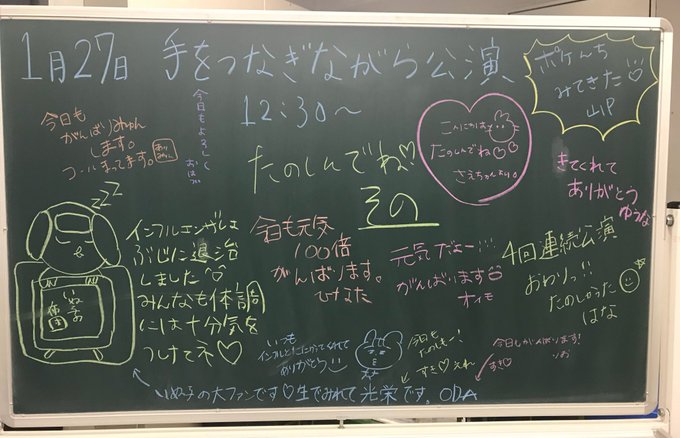 1月27日 手をつなぎながら公演
12:30～
たのしんでね♡
その
ポケんち
みてきた
山P
今日も
がんばりゅりゅん
します。
コールまってます。
今日もよろしく
おはつ
こんにちは
たのしんでね
さえちゃんより。
きてくれて
ありがとう
ゆうな
インフルエンザは
ぶじに退治
しました
みんなも体調
には十分気を
つけてネ♡
今日も元気
100倍
がんばります。
ひなた
元気だよー!!!
がんばります
オイモ
4回連続公演
おわりっ!!
たのしかった
はな
いつも
ありがとう
今日も
たのしもー!
すき♡
今日もがんばります!
すき♡
の大ファンです♡生でみれて光栄です。ODA